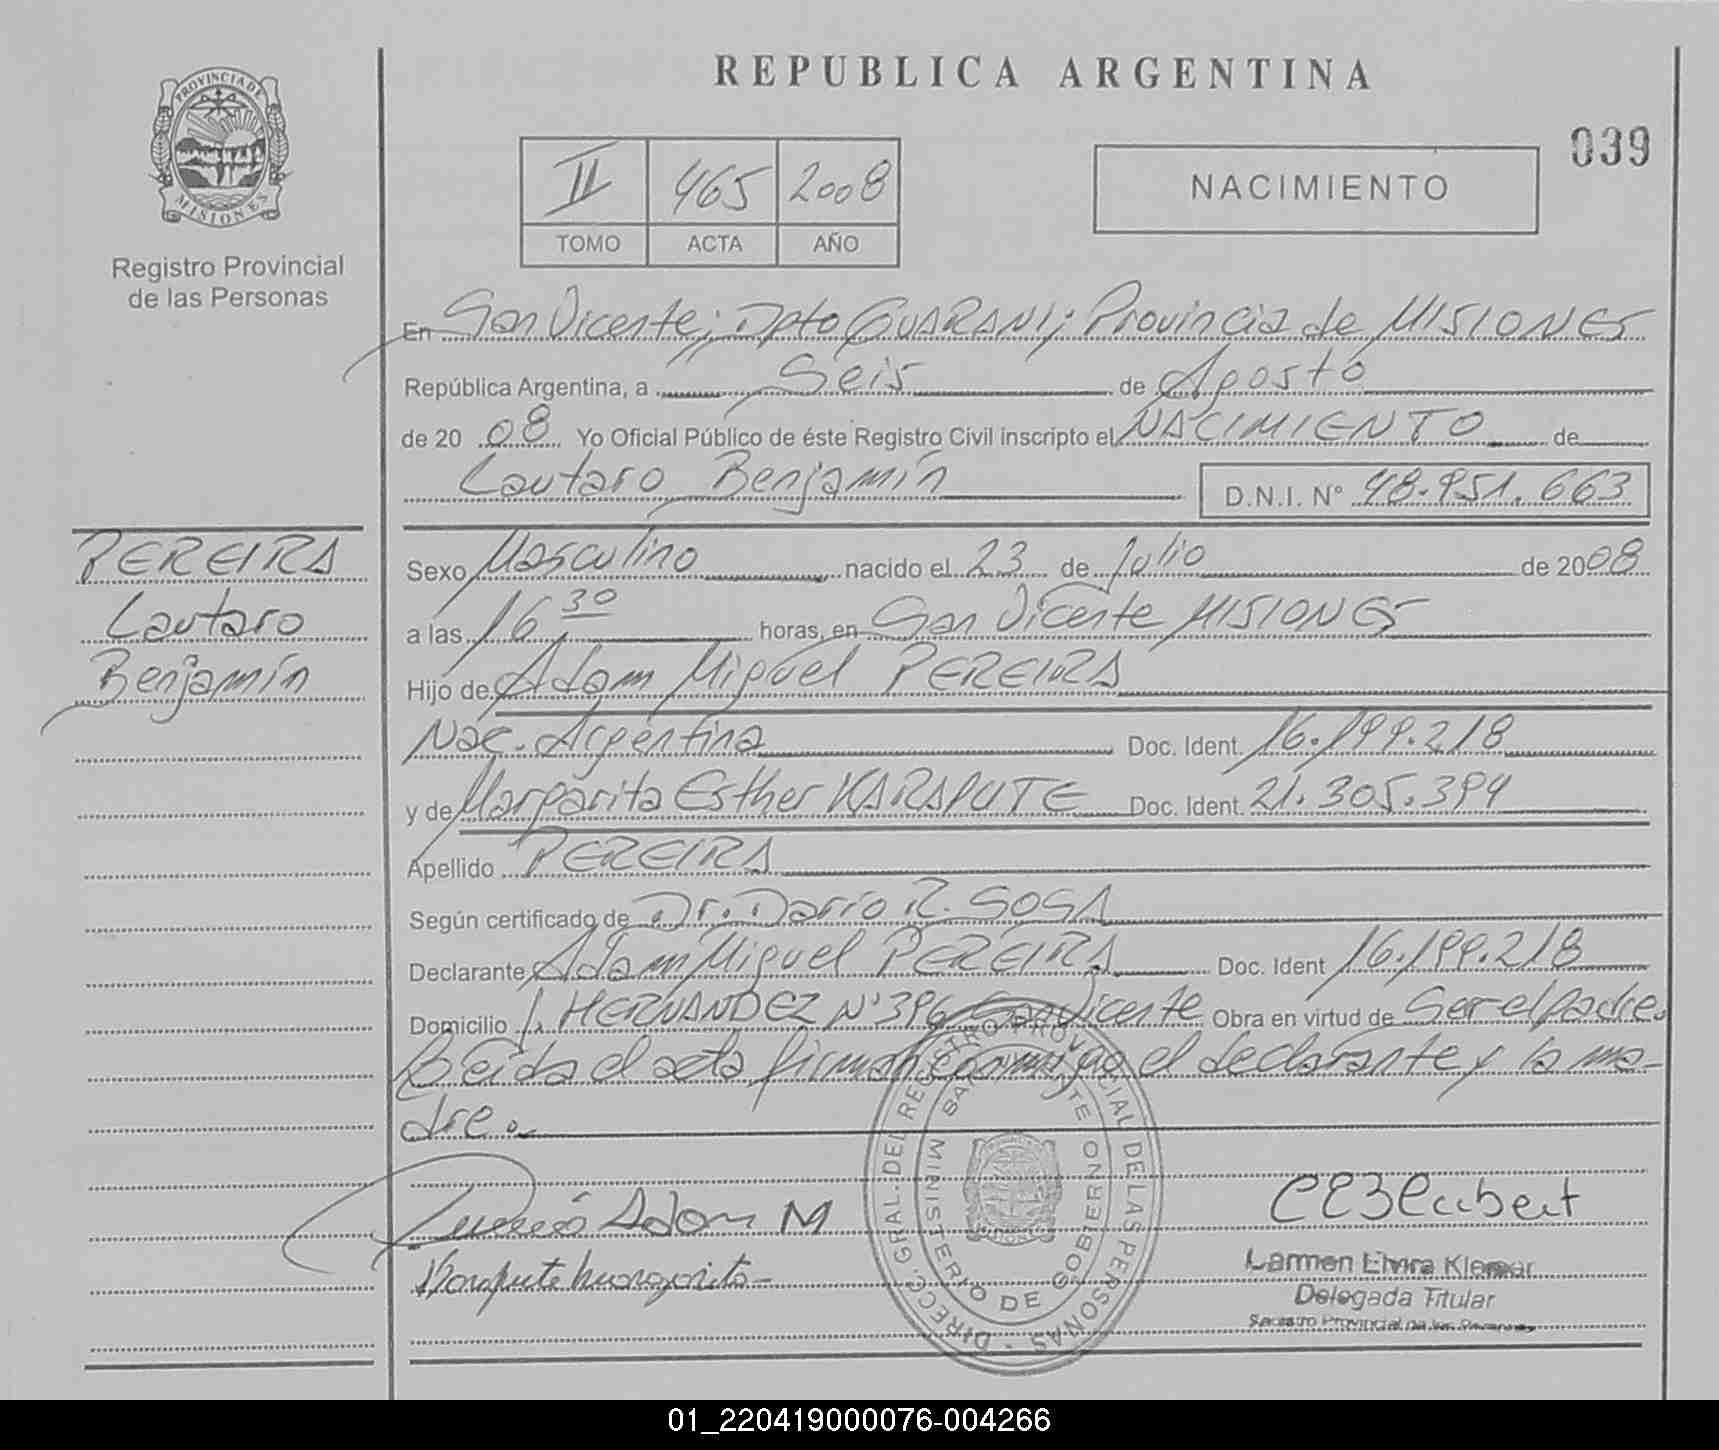 REPUBLICA ARGENTINA
039
PROVINCIA DE
MISIONES
Registro Provincial
de las Personas
II 465 2008
TOMO ACTA AÑO
NACIMIENTO
En San Vicente; Dpto GUARANI; Provincia de MISIONES
República Argentina, a Seis de Agosto
de 20 08 Yo Oficial Público de éste Registro Civil inscripto el NACIMIENTO de
Lautaro Benjamín D.N.I. Nº 48.951.663
PEREIRA
Lautaro
Benjamín
Sexo Masculino nacido el 23 de Julio de 2008
a las 16,30 horas, en San Vicente MISIONES
Hijo de Adam Miguel PEREIRA
Nac. Argentina Doc. Ident. 16.199.218
y de Margarita Esther KARAPUTE Doc. Ident. 21.305.394
Apellido PEREIRA
Según certificado de Dr. Darío R. SOSA
Declarante Adam Miguel PEREIRA Doc. Ident 16.199.218
Domicilio J. HERNANDEZ Nº 396 San Vicente Obra en virtud de Ser el padre.
Leida el acta firman conmigo el declarante y la ma-
dre.
DIRECC. GRAL. DEL REGISTRO PROVINCIAL DE LAS PERSONAS
MINISTERIO DE GOBIERNO
Adam M
Karapute Margarita
Carmen Elvira
Delegada Titular
Registro Provincial de las Personas
01_220419000076-004266